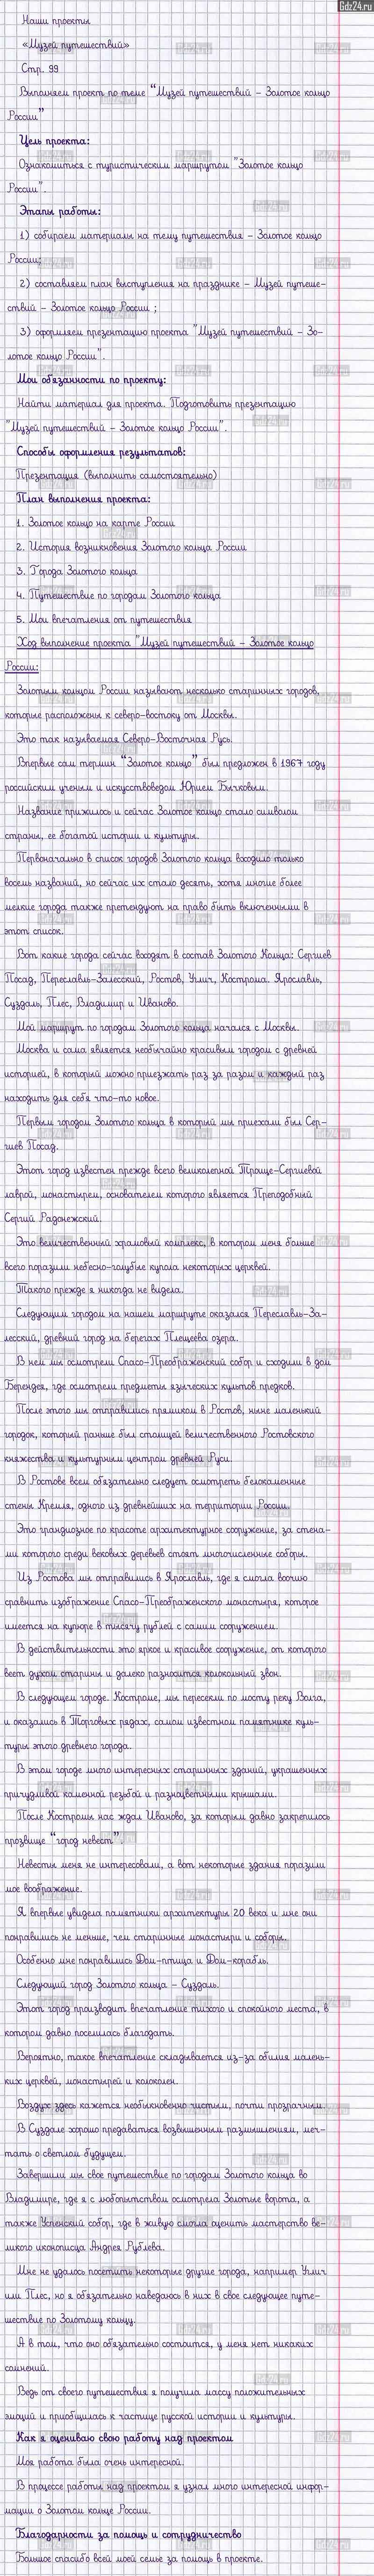 Gdz24.ru
Наши проекты
«Музей путешествий»
Стр. 99
Выполняем проект по теме “Музей путешествий – Золотое кольцо
России”
Цель проекта:
Ознакомиться с туристическим маршрутом "Золотое кольцо
России".
Этапы работы:
1) собираем материалы на тему путешествия – Золотое кольцо
России;
2) составляем план выступления на празднике – Музей путеше-
ствий – Золотое кольцо России ;
3) оформляем презентацию проекта "Музей путешествий – Зо-
лотое кольцо России".
Мои обязанности по проекту:
Найти материал для проекта. Подготовить презентацию
"Музей путешествий – Золотое кольцо России".
Способы оформления результатов:
Презентация (выполнить самостоятельно)
План выполнения проекта:
1. Золотое кольцо на карте России
2. История возникновения Золотого кольца России
3. Города Золотого кольца
4. Путешествие по городам Золотого кольца
5. Мои впечатления от путешествия
Ход выполнение проекта "Музей путешествий – Золотое кольцо
России:
Золотым кольцом России называют несколько старинных городов,
которые расположены к северо-востоку от Москвы.
Это так называемая Северо-Восточная Русь.
Впервые сам термин “Золотое кольцо” был предложен в 1967 году
российским ученым и искусствоведом Юрием Бычковым.
Название прижилось и сейчас Золотое кольцо стало символом
страны, ее богатой истории и культуры.
Первоначально в список городов Золотого кольца входило только
восемь названий, но сейчас их стало десять, хотя многие более
мелкие города также претендуют на право быть включенными в
этот список.
Вот какие города сейчас входят в состав Золотого Кольца: Сергиев
Посад, Переславль-Залесский, Ростов, Углич, Кострома. Ярославль,
Суздаль, Плес, Владимир и Иваново.
Мой маршрут по городам Золотого кольца начался с Москвы.
Москва и сама является необычайно красивым городом с древней
историей, в который можно приезжать раз за разом и каждый раз
находить для себя что-то новое.
Первым городом Золотого кольца в который мы приехали был Сер-
гиев Посад.
Этот город известен прежде всего великолепной Троице-Сергиевой
лаврой, монастырем, основателем которого является Преподобный
Сергий Радонежский.
Это величественный храмовый комплекс, в котором меня больше
всего поразили небесно-голубые купола некоторых церквей.
Такого прежде я никогда не видела.
Следующим городом на нашем маршруте оказался Переславль-За-
лесский, древний город на берегах Плещеева озера.
В нем мы осмотрели Спасо-Преображенский собор и сходили в дом
Берендея, где осмотрели предметы языческих культов предков.
После этого мы отправились прямиком в Ростов, ныне маленький
городок, который раньше был столицей величественного Ростовского
княжества и культурным центром древней Руси.
В Ростове всем обязательно следует осмотреть белокаменные
стены Кремля, одного из древнейших на территории России.
Это грандиозное по красоте архитектурное сооружение, за стена-
ми которого среди вековых деревьев стоят многочисленные соборы.
Из Ростова мы отправились в Ярославль, где я смогла воочию
сравнить изображение Спасо-Преображенского монастыря, которое
имеется на купюре в тысячу рублей с самим сооружением.
В действительности это яркое и красивое сооружение, от которого
веет духом старины и далеко разносится колокольный звон.
В следующем городе. Костроме, мы пересекли по мосту реку Волга,
и оказались в Торговых рядах, самом известном памятнике куль-
туры этого древнего города.
В этом городе много интересных старинных зданий, украшенных
причудливой каменной резьбой и разноцветными крышами.
После Костромы нас ждал Иваново, за которым давно закрепилось
прозвище “город невест”.
Невесты меня не интересовали, а вот некоторые здания поразили
мое воображение.
Я впервые увидела памятники архитектуры 20 века и мне они
понравились не меньше, чем старинные монастыри и соборы.
Особенно мне понравились Дом-птица и Дом-корабль.
Следующий город Золотого кольца – Суздаль.
Этот город производит впечатление тихого и спокойного места, в
котором давно поселилась благодать.
Вероятно, такое впечатление складывается из-за обилия малень-
ких церквей, монастырей и колоколен.
Воздух здесь кажется необыкновенно чистым, почти прозрачным.
В Суздале хорошо предаваться возвышенным размышлениям, меч-
тать о светлом будущем.
Завершили мы свое путешествие по городам Золотого кольца во
Владимире, где я с любопытством осмотрела Золотые ворота, а
также Успенский собор, где в живую смогла оценить мастерство ве-
ликого иконописца Андрея Рублева.
Мне не удалось посетить некоторые другие города, например Углич
или Плес, но я обязательно наведаюсь в них в свое следующее путе-
шествие по Золотому кольцу.
А в том, что оно обязательно состоится, у меня нет никаких
сомнений.
Ведь от своего путешествия я получила массу положительных
эмоций и приобщилась к частице русской истории и культуры.
Как я оцениваю свою работу над проектом
Моя работа была очень интересной.
В процессе работы над проектом я узнал много интересной инфор-
мации о Золотом кольце России.
Благодарности за помощь и сотрудничество
Большое спасибо всей моей семье за помощь в проекте.